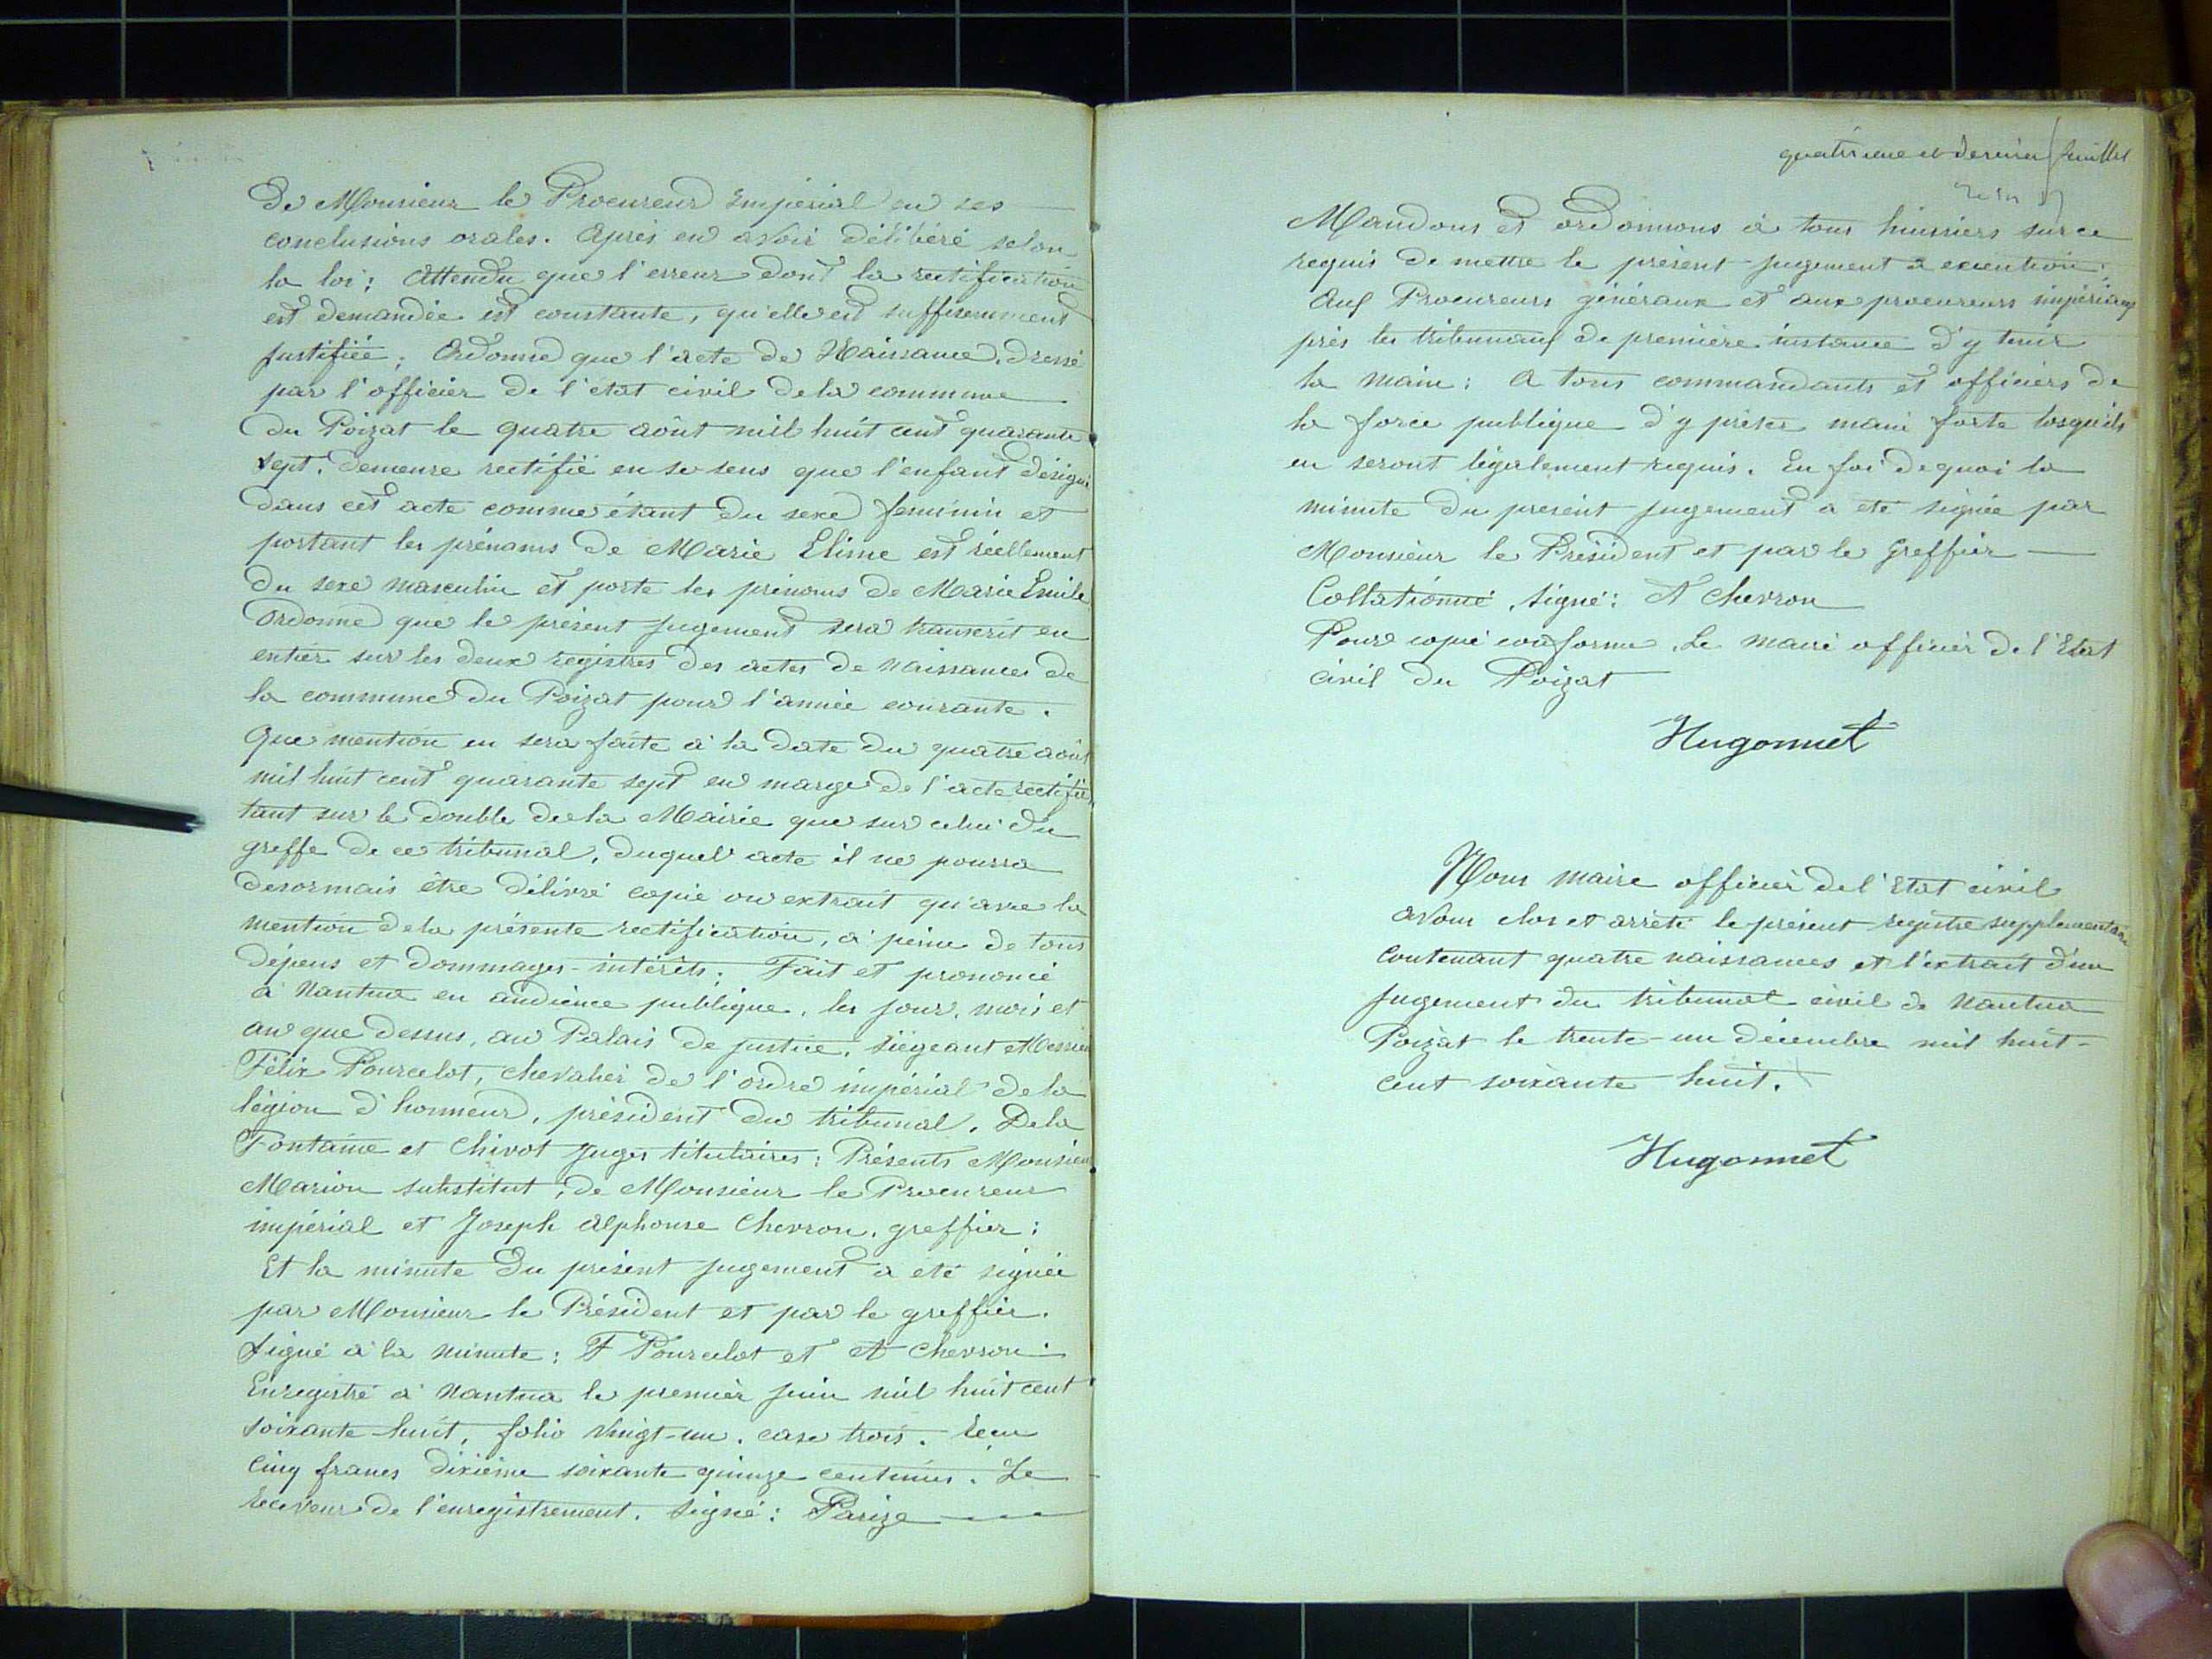 De Monsieur le Procureur Impérial en ses
conclusions orales. Après en avoir délibéré selon
la loi ; Attendu que l'erreur dont la rectification
est demandée est constante, qu'elle est suffisamment
justifiée ; Ordonne que l'acte de Naissance, dressé
par l'officier de l'état civil de la commune
du Poizat le quatre août mil huit cent quarante
sept. demeure rectifié en se sens que l'enfant désigné
dans cet acte comme étant du sexe feminin et
portant les prénoms de Marie Eline est réellement
du sexe masculin et porte les prénoms de Marie Emile
Ordonne que le présent jugement sera transcrit en
entier sur les deux registres des actes de naissances de
la commune du Poizat pour l'année courante.
Que mention en sera faite à la date du quatre août
mil huit cent quarante sept en marge de l'acte rectifié
tant sur le double de la Mairie que sur celui du
greffe de ce tribunal, duquel acte il ne pourra
desormais être délivré copie ou extrait qu'avec la
mention de la présente rectification, à peine de tous
dépens et dommages-intérêts ; Fait et prononcé
à Nantua en audience publique, les jour, mois et
an que dessus, au Palais de justice, siégeant Messieurs
Félix Pourcelot, chevalier de l'ordre impérial de la
légion d'honneur, président du tribunal, Dela
Fontaine et Chivot Juges titulaires : Présents Monsieur
Marion substitut, de Monsieur le Procureur
impérial et Joseph Alphonse Chevron, greffier ;
Et la minute du présent jugement a été signée
par Monsieur le Président et par le greffier.
Signé à la minute : F Pourcelot et A Chevron :
Enregistré à Nantua le premier juin mil huit cent
soixante-huit, folio vingt-un, case trois. Reçu
cinq francs dixième soixante quinze centimes. Le
receveur de l'enregistrement. Signé : Parize
quatrieme et dernier feuillet
Mandons et ordonnons à tous huissiers sur ce
requis de mettre le présent jugement à execution.
Aux Procureurs généraux et aux procureurs impériaux
près les tribunaux de première instance d'y tenir
la main : A tous commandants et officiers de
la force publique d'y prêter main forte losqu'ils
en seront légalement requis. En foi de quoi la
minute du present jugement a eté signée par
Monsieur le Président et par le Greffier
Collationné, signé : A Chevron
Pour copie conforme, Le maire officier de l'Etat
civil du Poizat
Hugonnet
Nous maire officier de l'Etat civil
avons clos et arrêté le présent registre supplementaire
contenant quatre naissances et l'extrait d'un
jugement du tribunal civil de Nantua
Poizat le trente-un décembre mil huit-
cent soixante huit.
Hugonnet